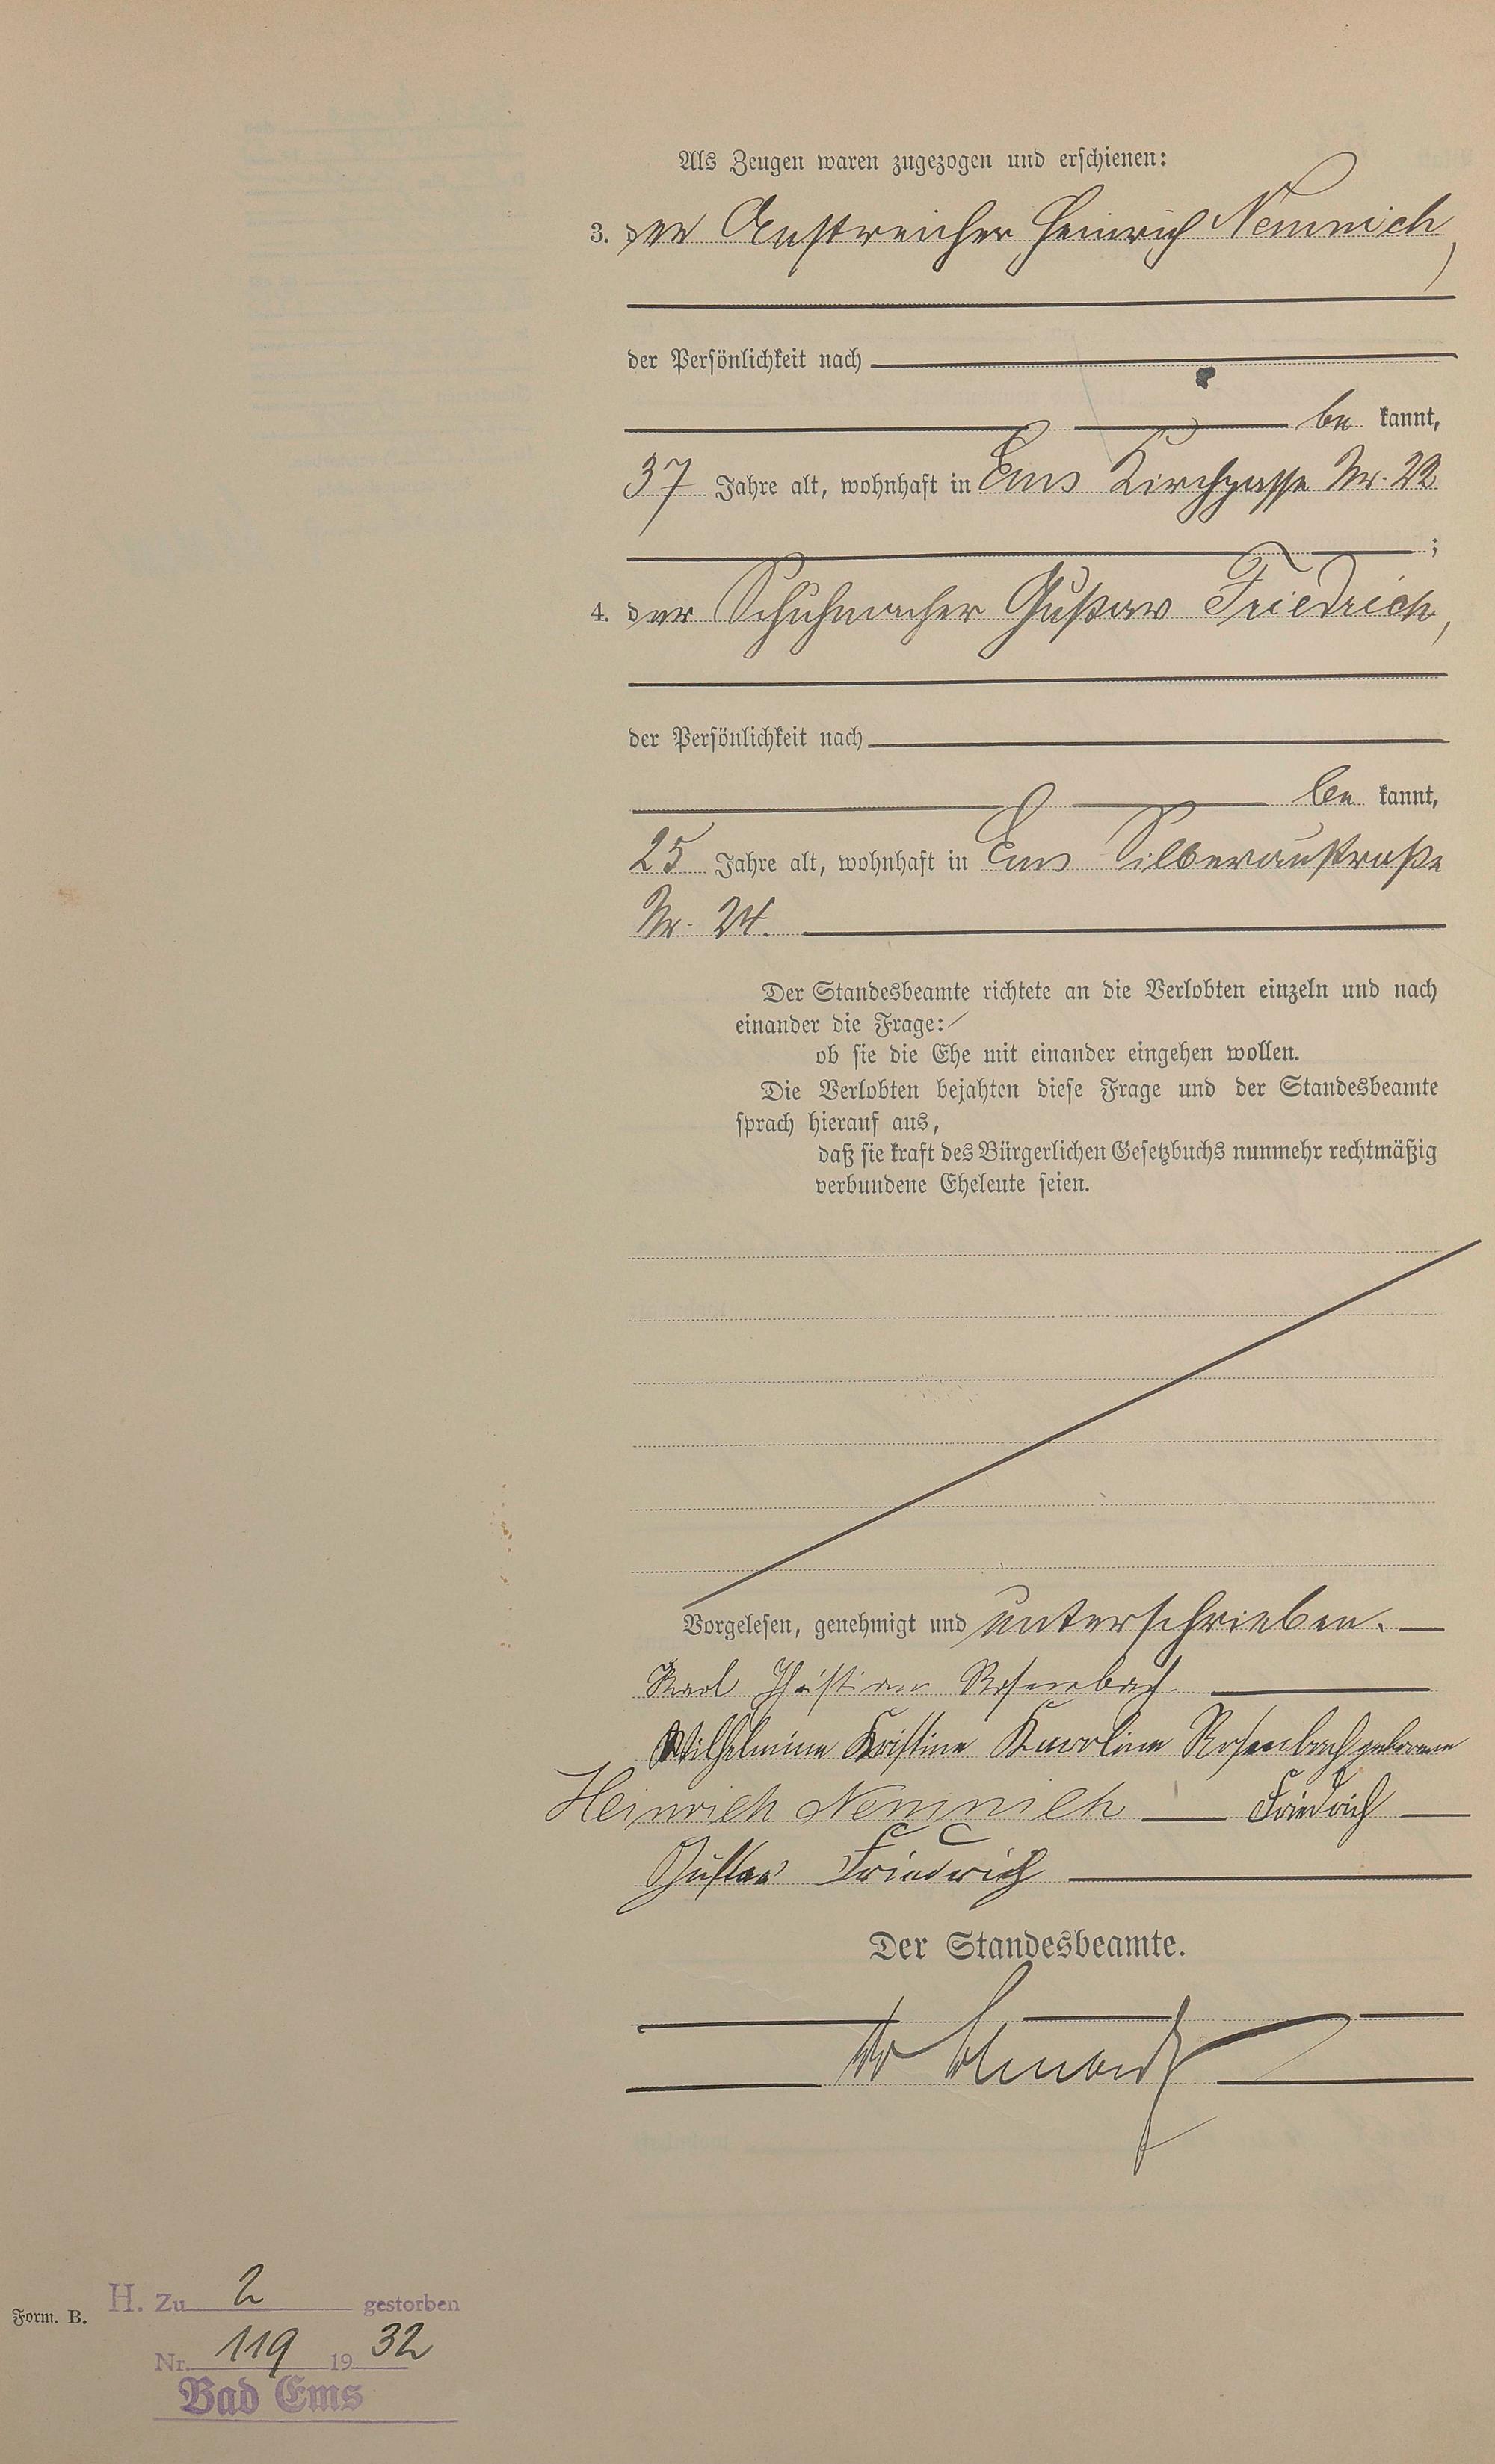 Als Zeugen waren zugezogen und erschienen:
3. der Anstreicher Heinrich Nemnich,
der Persönlichkeit nach
be kannt,
37 Jahre alt, wohnhaft in Ems Kirchgasse Nr. 22
;
4. der Schuhmacher Gustav Friedrich,
der Persönlichkeit nach
be kannt,
25 Jahre alt, wohnhaft in Ems Silberaustraße
Nr. 24.
Der Standesbeamte richtete an die Verlobten einzeln und nach
einander die Frage:
ob sie die Ehe mit einander eingehen wollen.
Die Verlobten bejahten diese Frage und der Standesbeamte
sprach hierauf aus,
daß sie kraft des Bürgerlichen Gesetzbuchs nunmehr rechtmäßig
verbundene Eheleute seien.
Vorgelesen, genehmigt und unterschrieben.
Karl Christian Rosenbach.
Wilhelmine Kristine Karoline Rosenbach geborene
Heinrich Nemnich Friedrich
Gustav Friedrich
Der Standesbeamte.
Form. B. H. Zu 2 gestorben
Nr. 119 1932
Bad Ems